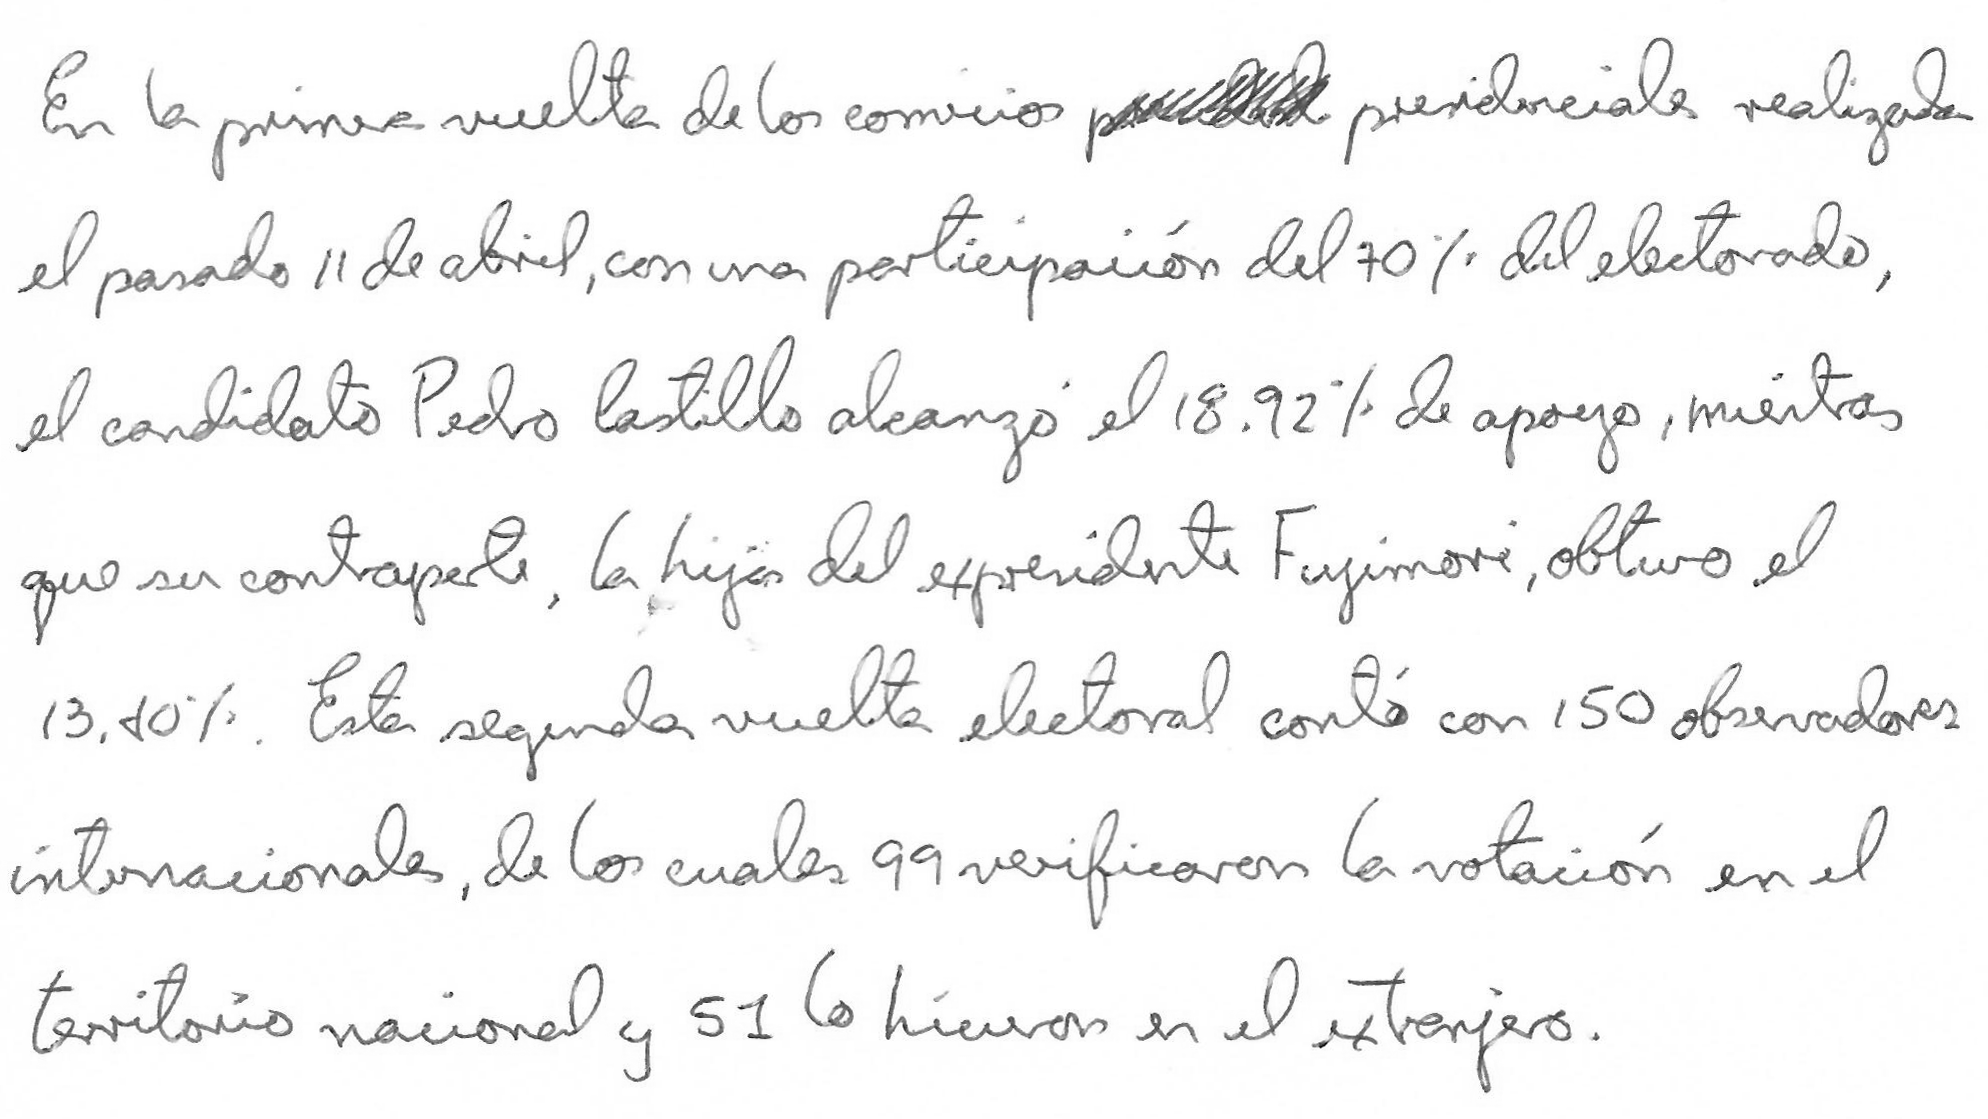 En la primera vuelta de los comicios presidenciales realizada
el pasado 11 de abril, con una participación del 70% del electorado,
el candidato Pedro Castillo alcanzó el 18.92% de apoyo, mientras
que su contraparte, la hija del expresidente Fujimori, obtuvo el
13.40%. Esta segunda vuelta electoral contó con 150 observadores
internacionales, de los cuales 99 verificaron la votación en el
territorio nacional y 51 lo hicieron en el extranjero.